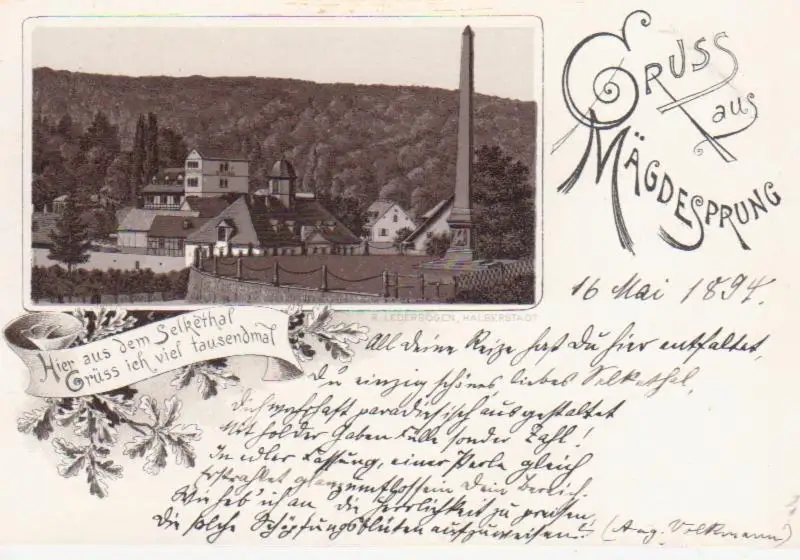 Gruss
aus
Mägdesprung
16 Mai 1894.
R. LEDERBOGEN, HALBERSTADT
Hier aus dem Selkethal
Grüss ich viel tausendmal
All deine Reize hast Du hier entfaltet,
Du einzig schönes, liebes Selkethal,
Dich wahrhaft paradiesisch ausgestaltet
Mit holder Gaben Fülle sonder Zahl!
In edler Fassung, einer Perle gleich
Erstrahlet glanzumflossen Dein Bereich.
Wie heb' ich an, die Herrlichkeit zu preisen,
Die solche Schöpfungsblüten aufzuweisen!
(Aug. Volkmann)